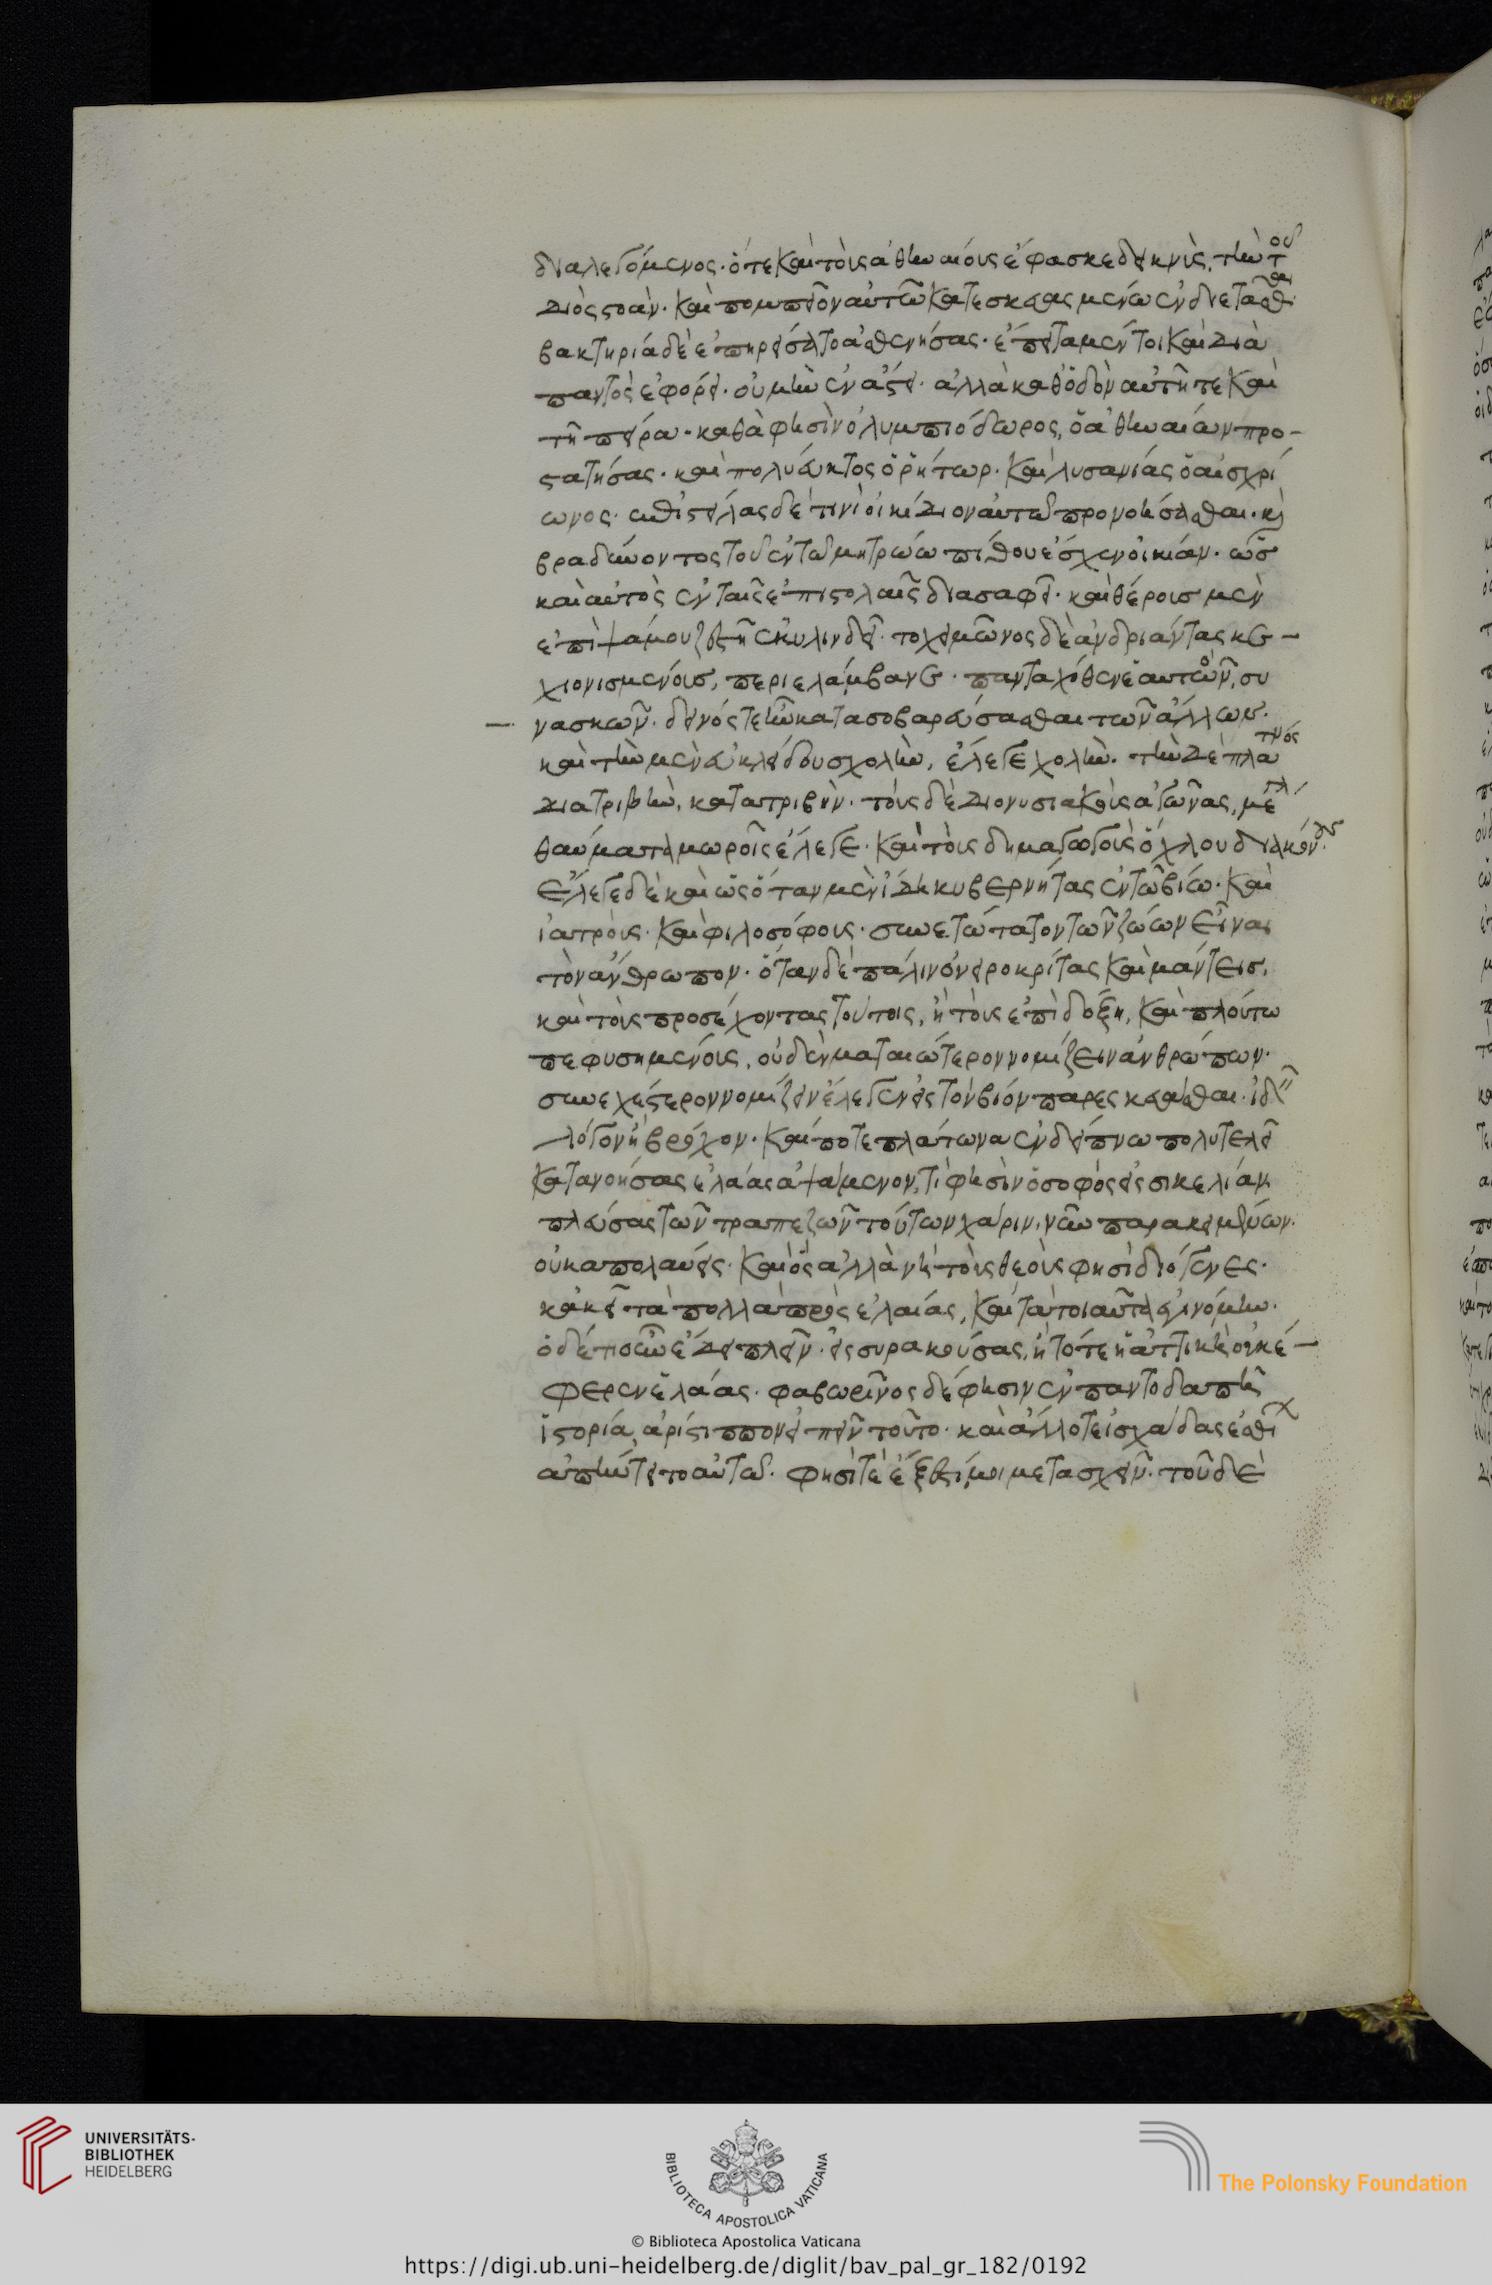 διαλεγόμενος· ὅτε καὶ τοὺς ἀθηναίους ἔφασκε δεικνὺς, τὴν τοῦ
Διὸς στοὰν· καὶ πομπεῖον αὐτῶ κατεσκευασμένω ἐνδιετᾶσθαι
βακτηρία δὲ ἐπηρείσατο ἀσθενήσας· ἔπειτα μέντοι καὶ διὰ
παντὸς ἐφόρει· οὐ μὴν ἐν ἄστει· ἀλλὰ καθ' ὁδὸν αὐτῆ τε καὶ
τῆ πείρα· καθὰ φησὶν ὀλυμπιόδωρος, ὁ ἀθηναίων προ-
στατήσας· καὶ πολύευκτος ὁ ῥήτωρ· καὶ λυσανίας ὁ αἰσχρί
ωνος· ἐπιστείλας δέ τινὶ οἰκίδιον αὐτῶ προνοήσασθαι· καὶ
βραδύνοντος τοῦ ἐν τῶ μητρώω πίθου ἔσχεν οἰκίαν· ὡς
καὶ αὐτὸς ἐν ταῖς ἐπιστολαῖς διασαφεῖ· καὶ θέρους μὲν
ἐπὶ ψάμου ζεστῆς ἐκυλινδεῖ· τοχειμῶνος δὲ ἀνδριάντας κε-
χιονισμένους, περιελάμβανε· πανταχόθεν ἑαυτὸν, συ
νασκῶν· δεινός τε ἦν κατασοβαρεύσασθαι τῶν ἄλλων·
καὶ τὴν μὲν εὐκλείδου σχολὴν, ἔλεγε χολὴν· τὴν δὲ πλάτωνος
διατριβὴν, κατατριβὴν· τοὺς δὲ Διονυσιακοὺς ἀγῶνας, μεγάλα
θαύματα μωροῖς ἔλεγε· καὶ τοὺς δημαγωγοὺς ὄχλου διακόνους·
ἔλεγε δὲ καὶ ὡς ὅταν μὲν ἴδη κυβερνήτας ἐν τῶ βίω· καὶ
ἰατροὺς· καὶ φιλοσόφους· συνετώτατον τῶν ζώων εἶναι
τὸν ἄνθρωπον· ὅταν δὲ πάλιν ὀνειροκρίτας καὶ μάντεις,
καὶ τοὺς προσέχοντας τούτοις, ἢ τοὺς ἐπὶ δόξη, καὶ πλούτω
πεφυσημένους, οὐδὲν ματαιώτερον νομίζειν ἀνθρώπων·
συνεχέστερον νομίζειν ἔλεγεν εἰς τὸν βίον παρεσκευάσθαι· ἰδεῖν
λόγον ἢ βρόχον· καί ποτε πλάτωνα ἐν δείπνω πολυτελεῖ
κατανοήσας ἐλάας ἁψάμενον, τί φησὶν ὁ σοφὸς εἰς σικελίαν
πλεύσας τῶν τραπεζῶν τούτων χάριν, νῦν παρακειμένων·
οὐκ απολαύεις· καὶ ὃς ἀλλὰ νὴ τοὺς θεοὺς φησὶ διόγενες·
κἀκεῖ τὰ πολλὰ πρὸς ἐλαίας, καὶ τὰ τοιαῦτα ἐγινόμην·
ὁ δέ τί οὖν ἔδει πλεῖν· εἰς συρακούσας, ἢ τότε ἡ ἀττικὴ οὐκ ἔ-
φερεν ἐλάας· φαβωρῖνος δέ φησιν ἐν παντοδαπῆ
ἱστορία, ἀρίστιππον εἰπεῖν τοῦτο· καὶ ἄλλοτε ἰσχάδας ἐσθίων
ἀπήντετο αὐτῶ· φησί τε ἔξεστί μοι μετασχεῖν· τοῦ δὲ
UNIVERSITÄTS-
BIBLIOTHEK
HEIDELBERG
BIBLIOTECA APOSTOLICA VATICANA
The Polonsky Foundation
© Biblioteca Apostolica Vaticana
https://digi.ub.uni-heidelberg.de/diglit/bav_pal_gr_182/0192